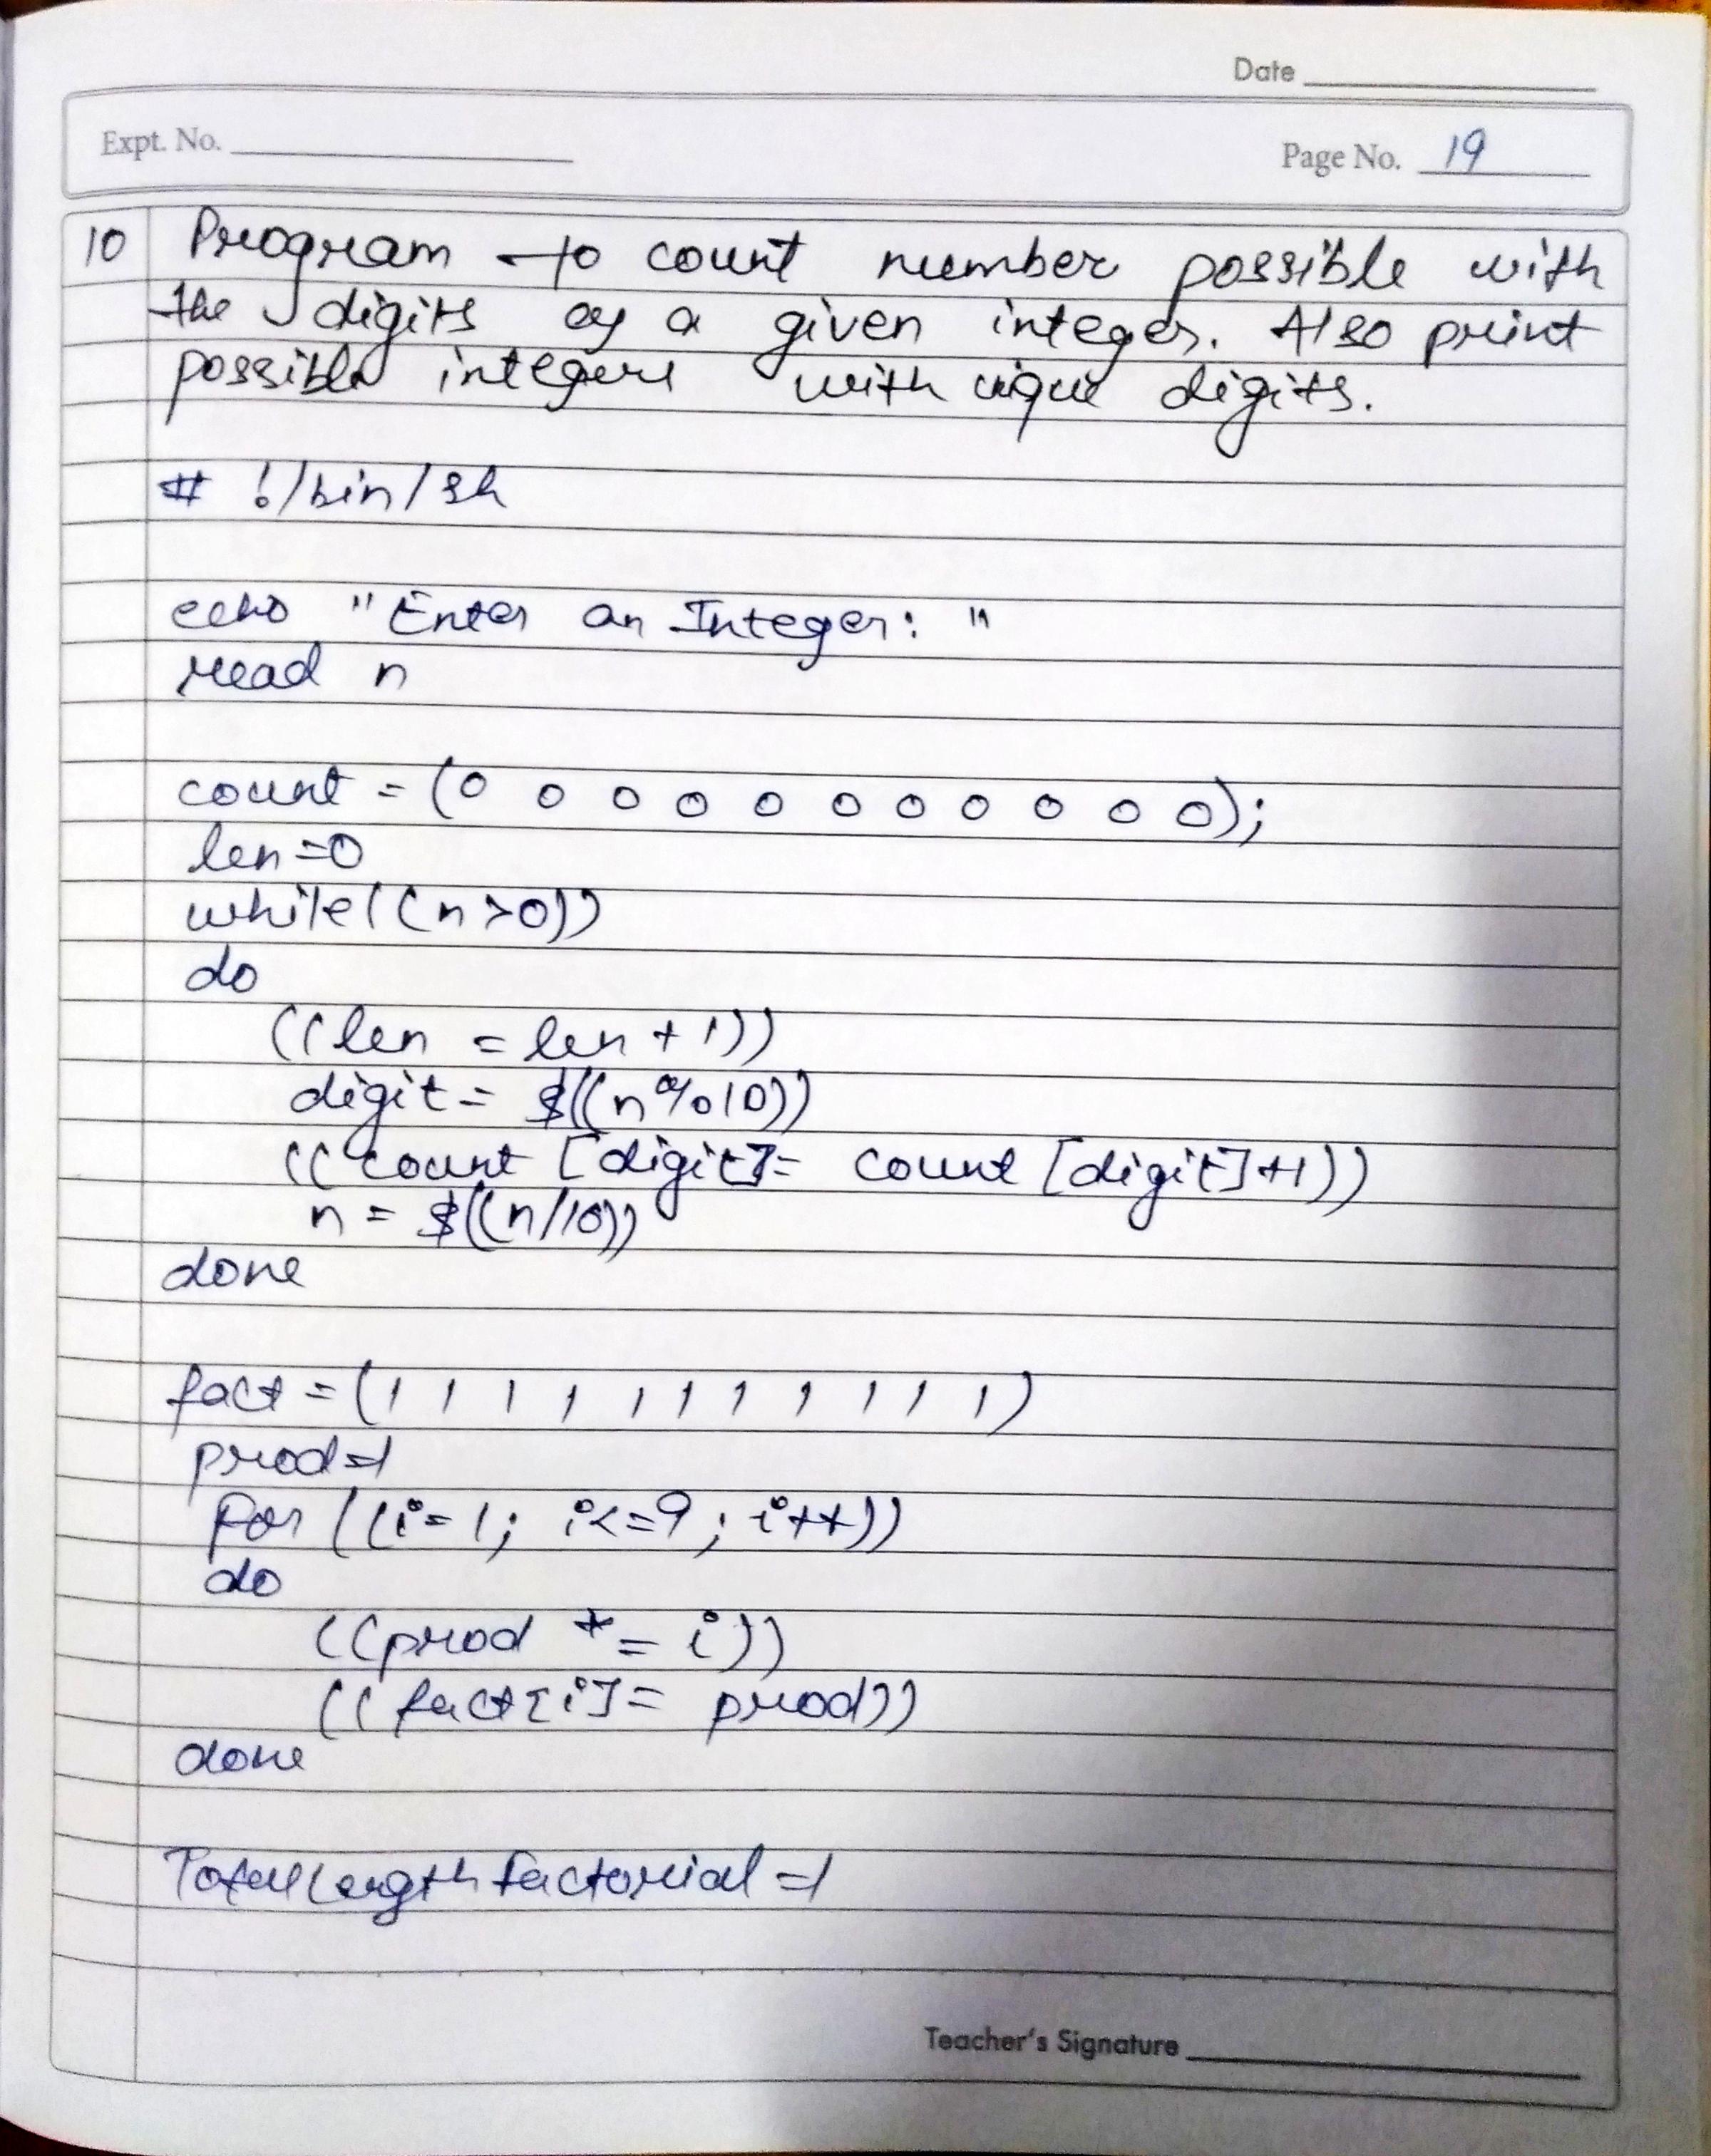 Date
Expt. No.
Page No. 19
10 Program to count number possible with
the digits of a given integer. Also print
possible integers with uique digits.
# !/bin/sh
echo "Enter an Integer: "
read n
count = (0 0 0 0 0 0 0 0 0 0 0);
len=0
while((n>0))
do
((len = len + 1))
digit = $((n%10))
((count [digit]= count [digit]+1))
n = $((n/10))
done
fact = (1 1 1 1 1 1 1 1 1 1 1)
prod=1
for ((i=1; i<=9; i++))
do
((prod *= i))
((fact[i]= prod))
done
TotalLengthfactorial=1
Teacher's Signature